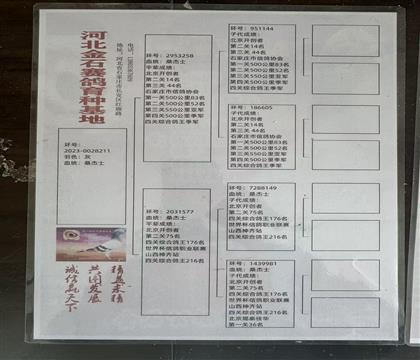 河北金石赛鸽育种基地
地址：河北省石家庄市长安区红旗路
环号：
2023-0028211
羽色：灰
血统：桑杰士
诚信赢天下
共同发展
精益求精
环号：2953258
血统：桑杰士
平辈成绩：
北京开创者
第二关14名
第三关 44名
石家庄市信鸽协会
第一关500公里83名
第二关500公里52名
第三关550公里亚军
第四关500公里季军
四关综合鸽王季军
环号：2031577
血统：桑杰士
平辈成绩：
北京开创者
第二关75名
四关综合鸽王176名
世界杯信鸽职业联赛
山西神齐站
第二关75名
四关综合鸽王216名
环号：951144
子代成绩：
北京开创者
第二关14名
第三关 44名
石家庄市信鸽协会
第一关500公里83名
第二关500公里52名
第三关550公里亚军
第四关500公里季军
四关综合鸽王季军
环号：186605
子代成绩：
北京开创者
第二关14名
第三关 44名
石家庄市信鸽协会
第一关500公里83名
第二关500公里52名
第三关550公里亚军
第四关500公里季军
四关综合鸽王季军
环号：7288149
血统：桑杰士
子代成绩：
北京开创者
第二关75名
四关综合鸽王176名
世界杯信鸽职业联赛
山西神齐站
四关综合鸽王216名
环号：1439981
血统：桑杰士
子代成绩：
北京开创者
第二关75名
四关综合鸽王176名
世界杯信鸽职业联赛
山西神齐站
四关综合鸽王216名
第一关36名